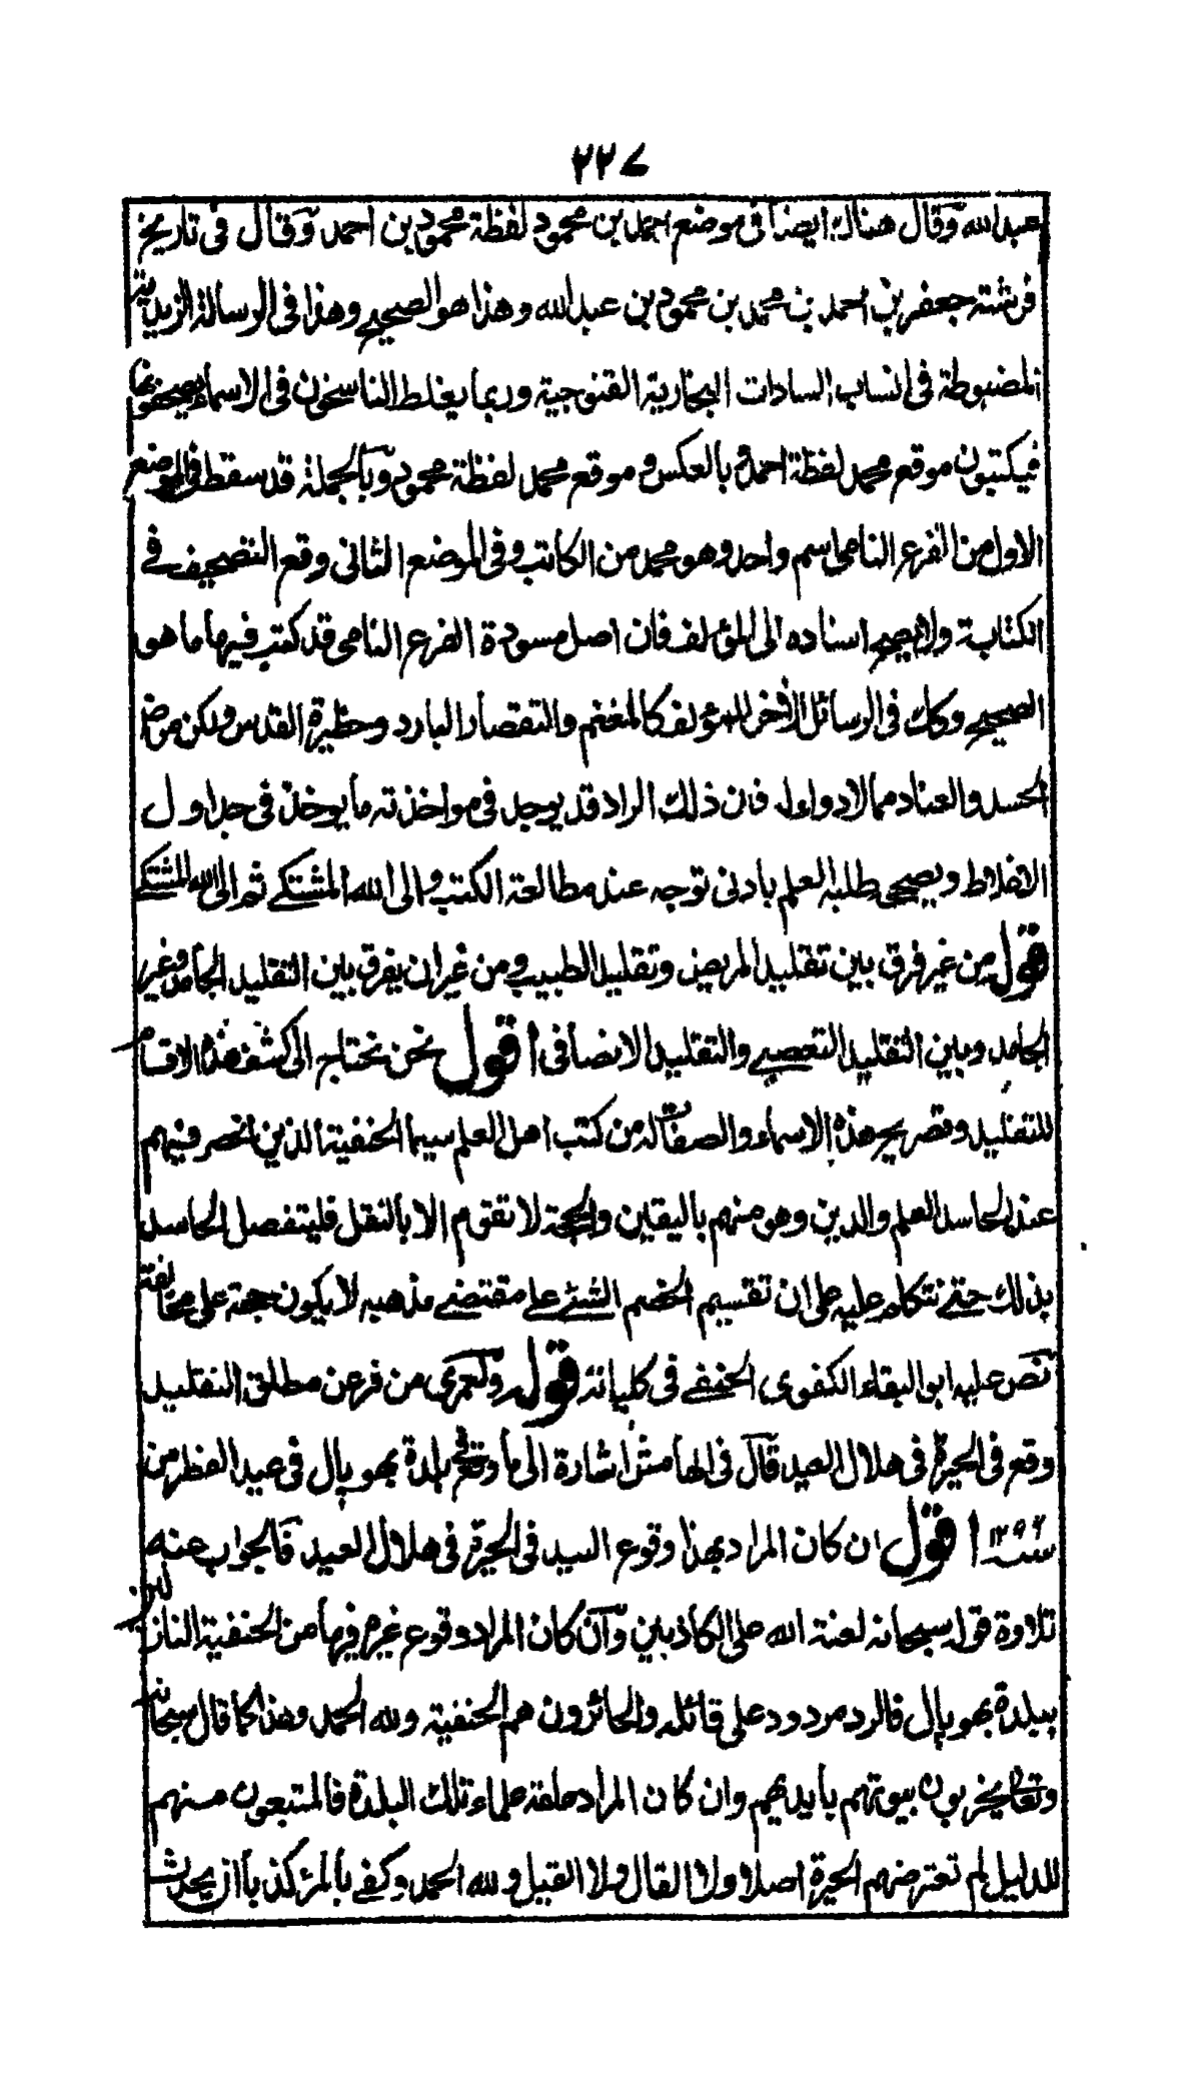 ٢٢٧
عبد الله وقال هناك ايضا فى موضع احمد بن محمود لفظة محمود بن احمد وقال فى تاريخ
فرشته جعفر بن احمد بن محمد بن محمود بن عبد الله وهذا هو الصحيح وهذا فى الرسالة الزيدية
المضبوطة فى انساب السادات البخارية القنوجية وربما يغلط الناسخون فى الاسماء يصحفونها
فيكتبون موقع محمد لفظة احمد او بالعكس و موقع محمد لفظة محمود وبالجملة قد سقط فى الموضع
الاول من الفرع النامى اسم واحد وهو محمد من الكاتب وفى الموضع الثانى وقع التصحيف فى
الكتابة ولا يصح اسناده الى المؤلف فان اصل مسودة الفرع النامى قد كتب فيها ما هو
الصحيح وكك فى الرسائل الاخر للمؤلف كالمغنم والتقصار البارد وحظيرة القدس ولكن مرض
الحسد والعناد مما لا دواء له فان ذلك الراد قد يوجد فى مواخذته ما يوخذ فى جداول
الاغلاط ويصحى طلبة العلم بادنى توجه عند مطالعة الكتب والى الله المشتكى ثم الى الله المشتكى
قوله من غير فرق بين تقليد المريض وتقليد الطبيب ومن غير ان يفرق بين التقليد الجامد وغير
الجامد وبين التقليد التعصبى والتقليد الانصافى اقول نحن نحتاج الى كشف هذه الاقسام
للتقليد وتصريح هذه الاسماء والصفات له من كتب اهل العلم سيما الحنفية الذين انحصر فيهم
عند الحاسد العلم والدين وهو منهم باليقين والحجة لا تقوم الا بالنقل فليتفصل الحاسد
بذلك حتى نتكلم عليه على ان تقسيم الخصم الشئ على مقتضى مذهبه لا يكون حجة على مخالفته
نص عليه ابو البقاء الكفوى الحنفى فى كلياته قوله ولعمرى من فر عن مطلق التقليد
وقع فى الحيرة فى هلال العيد قال فى الهامش اشارة الى ما وقع فى بلدة بهوپال فى عيد الفطر من
سنة ١٢٩٢ اقول ان كان المراد بهذا وقوع السيد فى الحيرة فى هلال العيد فالجواب عنه
تلاوة قوله سبحانه لعنة الله على الكاذبين وان كان المراد وقوع غيره فيها من الحنفية النازلين
ببلدة بهوپال فالرد مردود على قائله والحائرون هم الحنفية ولله الحمد وهذا كما قال سبحانه
وتعالى يخربون بيوتهم بايديهم وان كان المراد طائفة علماء تلك البلدة فالمتبعون منهم
للدليل لم تعترضهم الحيرة اصلا ولا القال ولا القيل ولله الحمد وكفى بالمرء كذبا ان يحدث